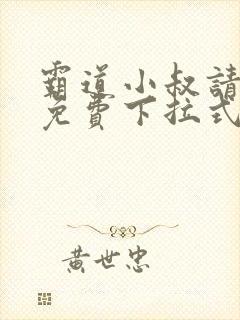 霸道小叔請
免費下拉式
黃世忠